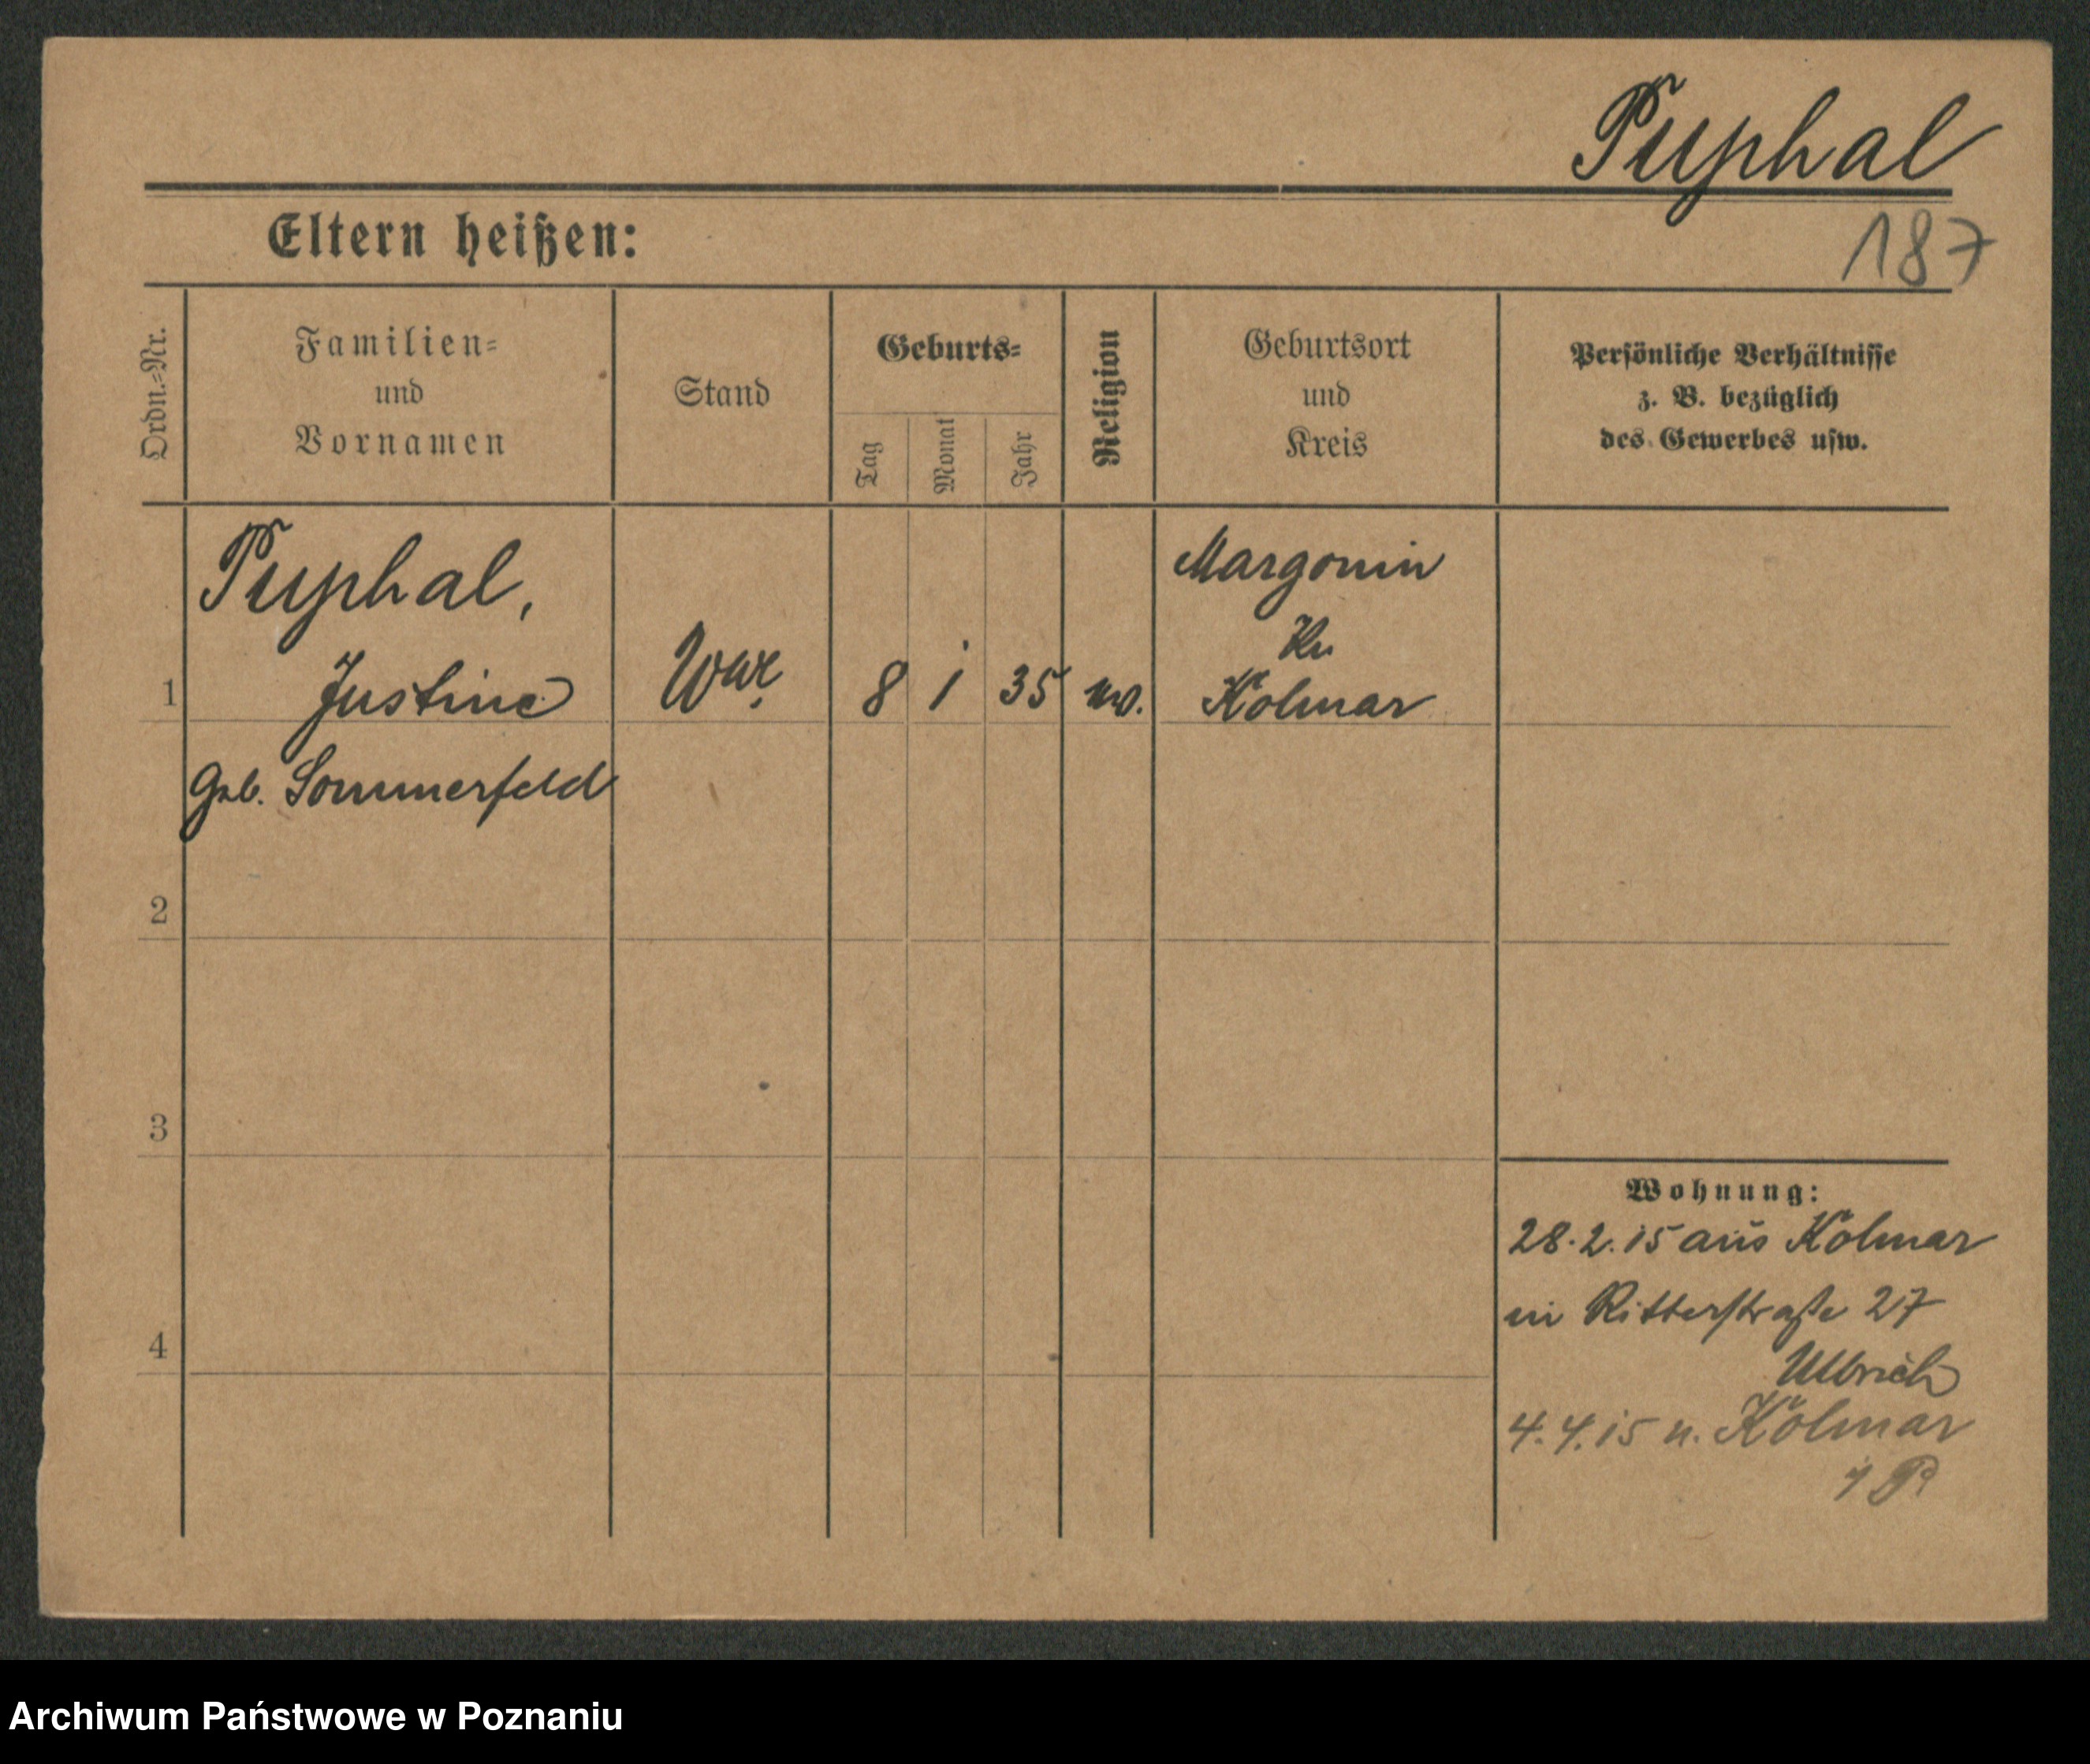 Puphal
187
Eltern heißen:
Ordn.=Nr.
Familien=
und
Vornamen
Stand
Geburts=
Tag
Monat
Jahr
Religion
Geburtsort
und
Kreis
Persönliche Verhältnisse
z. B. bezüglich
des Gewerbes usw.
Puphal,
Margonin
1 Justine 8 1 35 Kolmar
geb. Sommerfeld
2
3
4
Wohnung:
28.2.15 aus Kolmar
in Ritterstraße 27
Ullrich
4.4.15 n. Kolmar
Archiwum Państwowe w Poznaniu